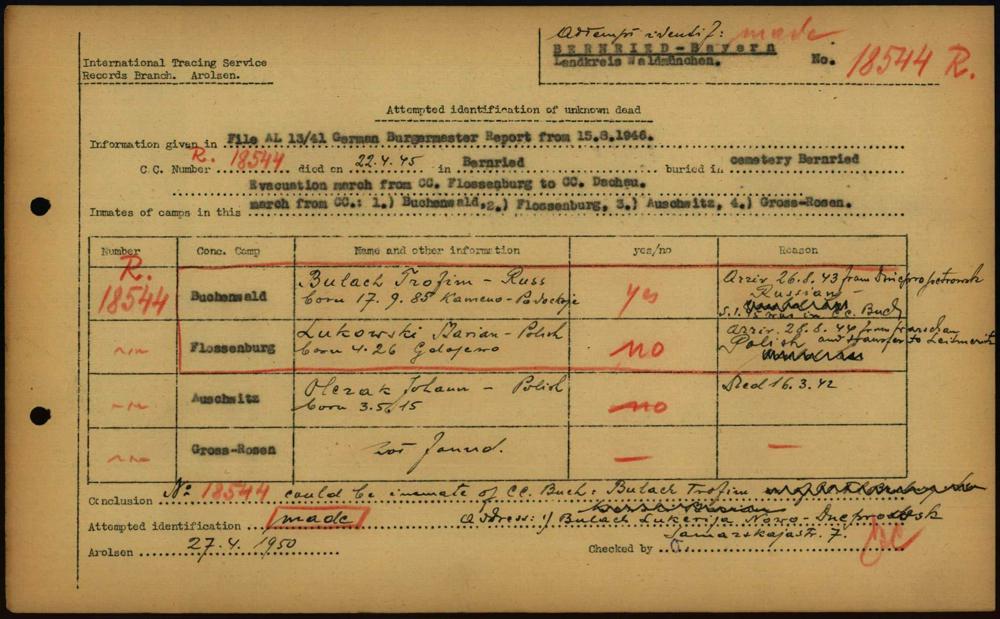 Attempt identif: made
BERNRIED-Bayern
Landkreis Waldmünchen.
No. 18544 R.
International Tracing Service
Records Branch. Arolsen.
Attempted identification of unknown dead
Information given in File AL 13/41 German Burgermaster Report from 15.8.1946.
C.C. Number R. 18544 died on 22.4.45 in Bernried buried in cemetery Bernried
Evacuation march from CC. Flossenburg to CC. Dachau.
Inmates of camps in this march from CC.: 1.) Buchenwald, 2.) Flossenburg, 3.) Auschwitz, 4.) Gross-Rosen.
Number Conc. Camp Name and other information yes/no Reason
R. 18544 Buchenwald Bulach Trofim - Russ yes Arriv 26.8.43 from Dniepropetrowsk
born 17.9.85 Kameno-
Russian -
was in CC. Buch,
Flossenburg Lukowski Marian - Polish no Arriv. 28.8.44 from
born 4.26 Polish and transfer to Leitmeritz
Auschwitz Olczak Johann - Polish no Died 16.3.42
born 3.5.15
Gross-Rosen not found. — —
Conclusion No 18544 could be inmate of CC. Buch: Bulach Trofim
Attempted identification made Address: 1) Bulach Lukerija Nowo-
Samarskajastr. 7.
Arolsen 27.4.1950 Checked by